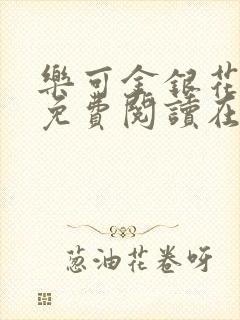 樂可金銀花
免費閱讀在
葱油花卷呀